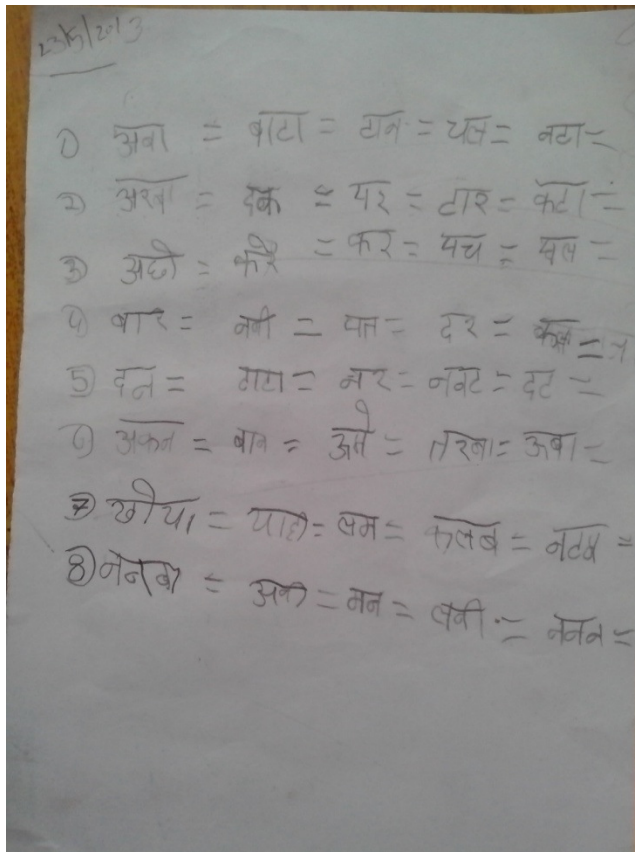 23/5/2013
1) अबा = बाटा = टान = पल = नटा =
2) अरबा = दक = पर = टार = केटा =
3) अछो = करै = कर = पच = खल =
4) बार = नबी = पत = दर =
5) दन = टाटा = नर = नवट = दट =
6) अकन = बाब = अमे = तरबा = ऊबा =
7) = याहो = लम = कलब = नटब =
8) = अकी = मन = लबी = ननन =